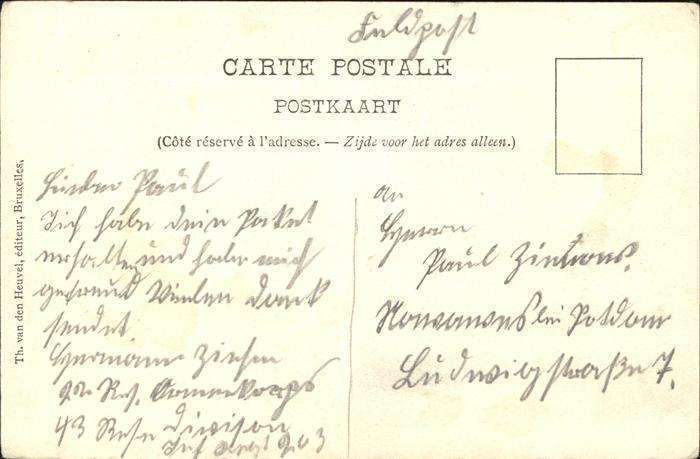 Feldpost
CARTE POSTALE
POSTKAART
(Côté réservé à l'adresse. — Zijde voor het adres alleen.)
Th. van den Heuvel, éditeur, Bruxelles.
Lieber Paul
Ich habe dein Paket
erhalten und habe mich
gefreut Vielen Dank
sendet
Hermann
Res. Armeekorps
43 Division
Inf 203
An
Herrn
Paul
Nowawes bei Potdam
Ludwigstraße 7.